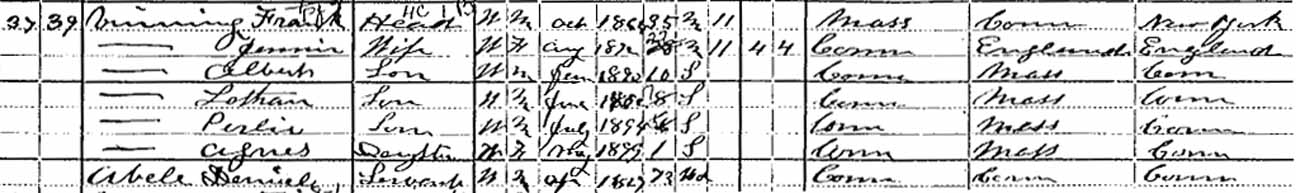 37 39 Vinning Frank Head W M Oct 1864 35 M 11 Mass Conn New York
— Jennie Wife W F Aug 28 M 11 4 4 Conn England England
— Albert Son W M Jan 1890 10 S Conn Mass Conn
— Lothan Son W M June 8 S Conn Mass Conn
— Perlie Son W M July 1894 S Conn Mass Conn
— Agnes Daughter W F May 1899 1 S Conn Mass Conn
Abele Daniel Servant W M Apr 1827 73 Wd Conn Conn Conn